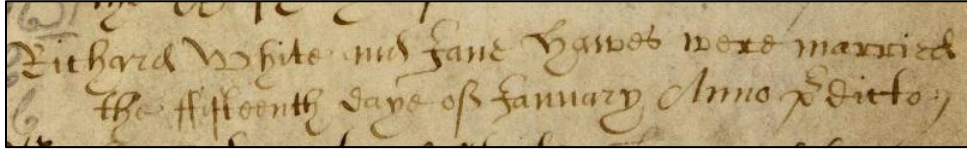 Richard White and Jane Hawes were married
the ffifteenth daye of January Anno p̱dicto